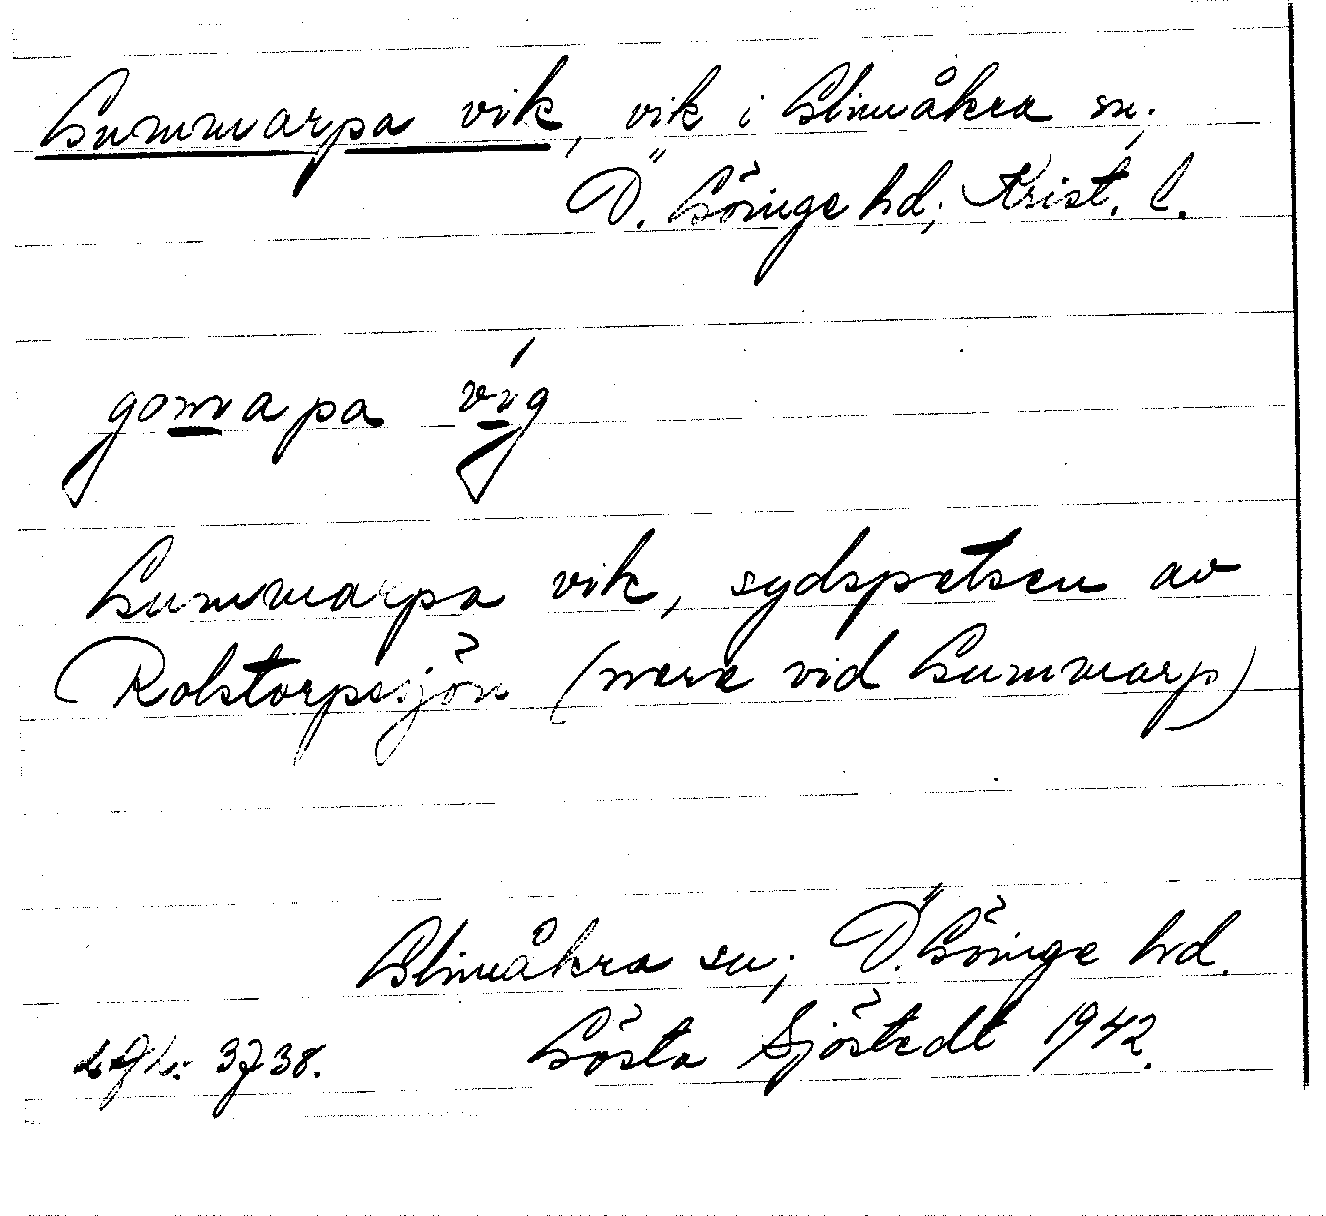 Gummarpa vik, vik i Glimåkra sn.
Ö. Göinge hd, Krist. l.
gomapa vig
Gummarpa vik, sydspetsen av
Rolstorpsjön (nere vid Gummarp)
Glimåkra sn, Ö. Göinge hd.
Gösta Sjöstedt 1942.
3738.